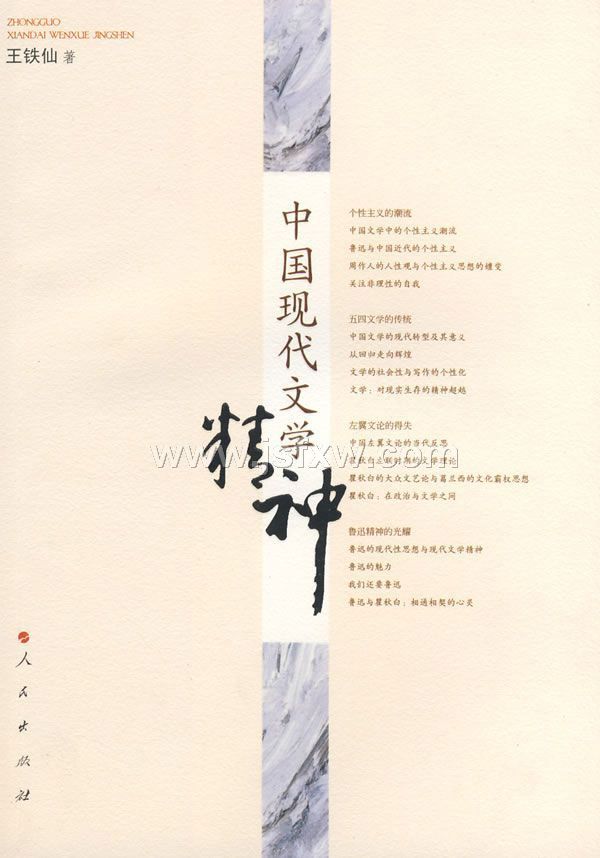 ZHONGGUO
XIANDAI WENXUE JINGSHEN
王铁仙 著
中国现代文学
精神
个性主义的潮流
中国文学中的个性主义潮流
鲁迅与中国近代的个性主义
周作人的人性观与个性主义思想的嬗变
关注非理性的自我
五四文学的传统
中国文学的现代转型及其意义
从回归走向辉煌
文学的社会性与写作的个性化
文学：对现实生存的精神超越
左翼文论的得失
中国左翼文论的当代反思
瞿秋白左联时期的文学理论
瞿秋白的大众文艺论与葛兰西的文化霸权思想
瞿秋白：在政治与文学之间
鲁迅精神的光耀
鲁迅的现代性思想与现代文学精神
鲁迅的魅力
我们还要鲁迅
鲁迅与瞿秋白：相通相契的心灵
www.jsfxw.com
人民出版社